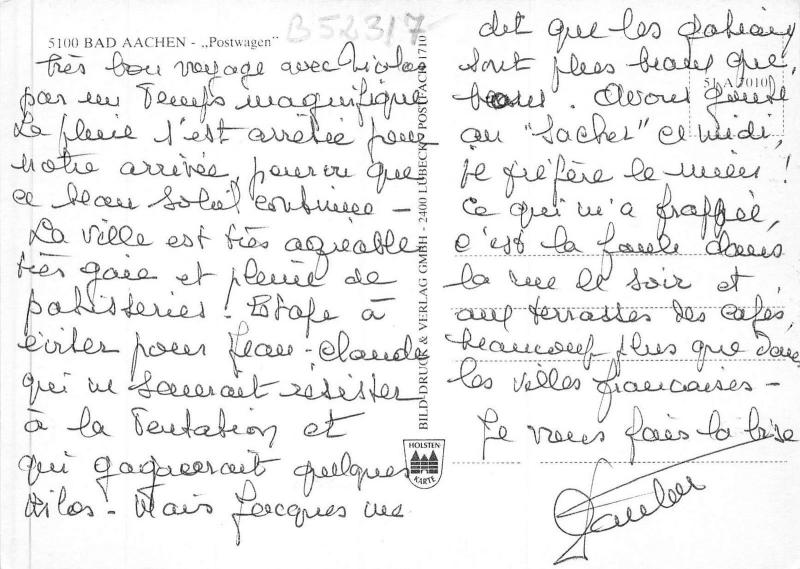 B523/7
5100 BAD AACHEN - „Postwagen"
très bon voyage avec Nicolas
par un Temps magnifique
La pluie s'est arrêtée pour
notre arrivée, pourvu que
ce beau soleil continue -
La ville est très agréable
très gaie et pleine de
patisseries! Etape à
éviter pour Jean-Claude
qui ne saurait résister
à la Tentation et
qui gagnerait quelques
kilos - Mais Jacques me
BILD-DRUCK & VERLAG GMBH - 2400 LÜBECK - POSTFACH 1710
HOLSTEN
KARTE
dit que les gateaux
sont plus beaux que
bons. Avons gouté
51 A 7010
au "Sacher" ce midi,
je préfère le mien!
Ce qui m'a frappée,
c'est la foule dans
la rue le soir et
aux terrasses des cafés,
beaucoup plus que dans
les villes françaises -
Je vous fais la bise